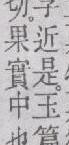 近是。玉篇
切。果實中也